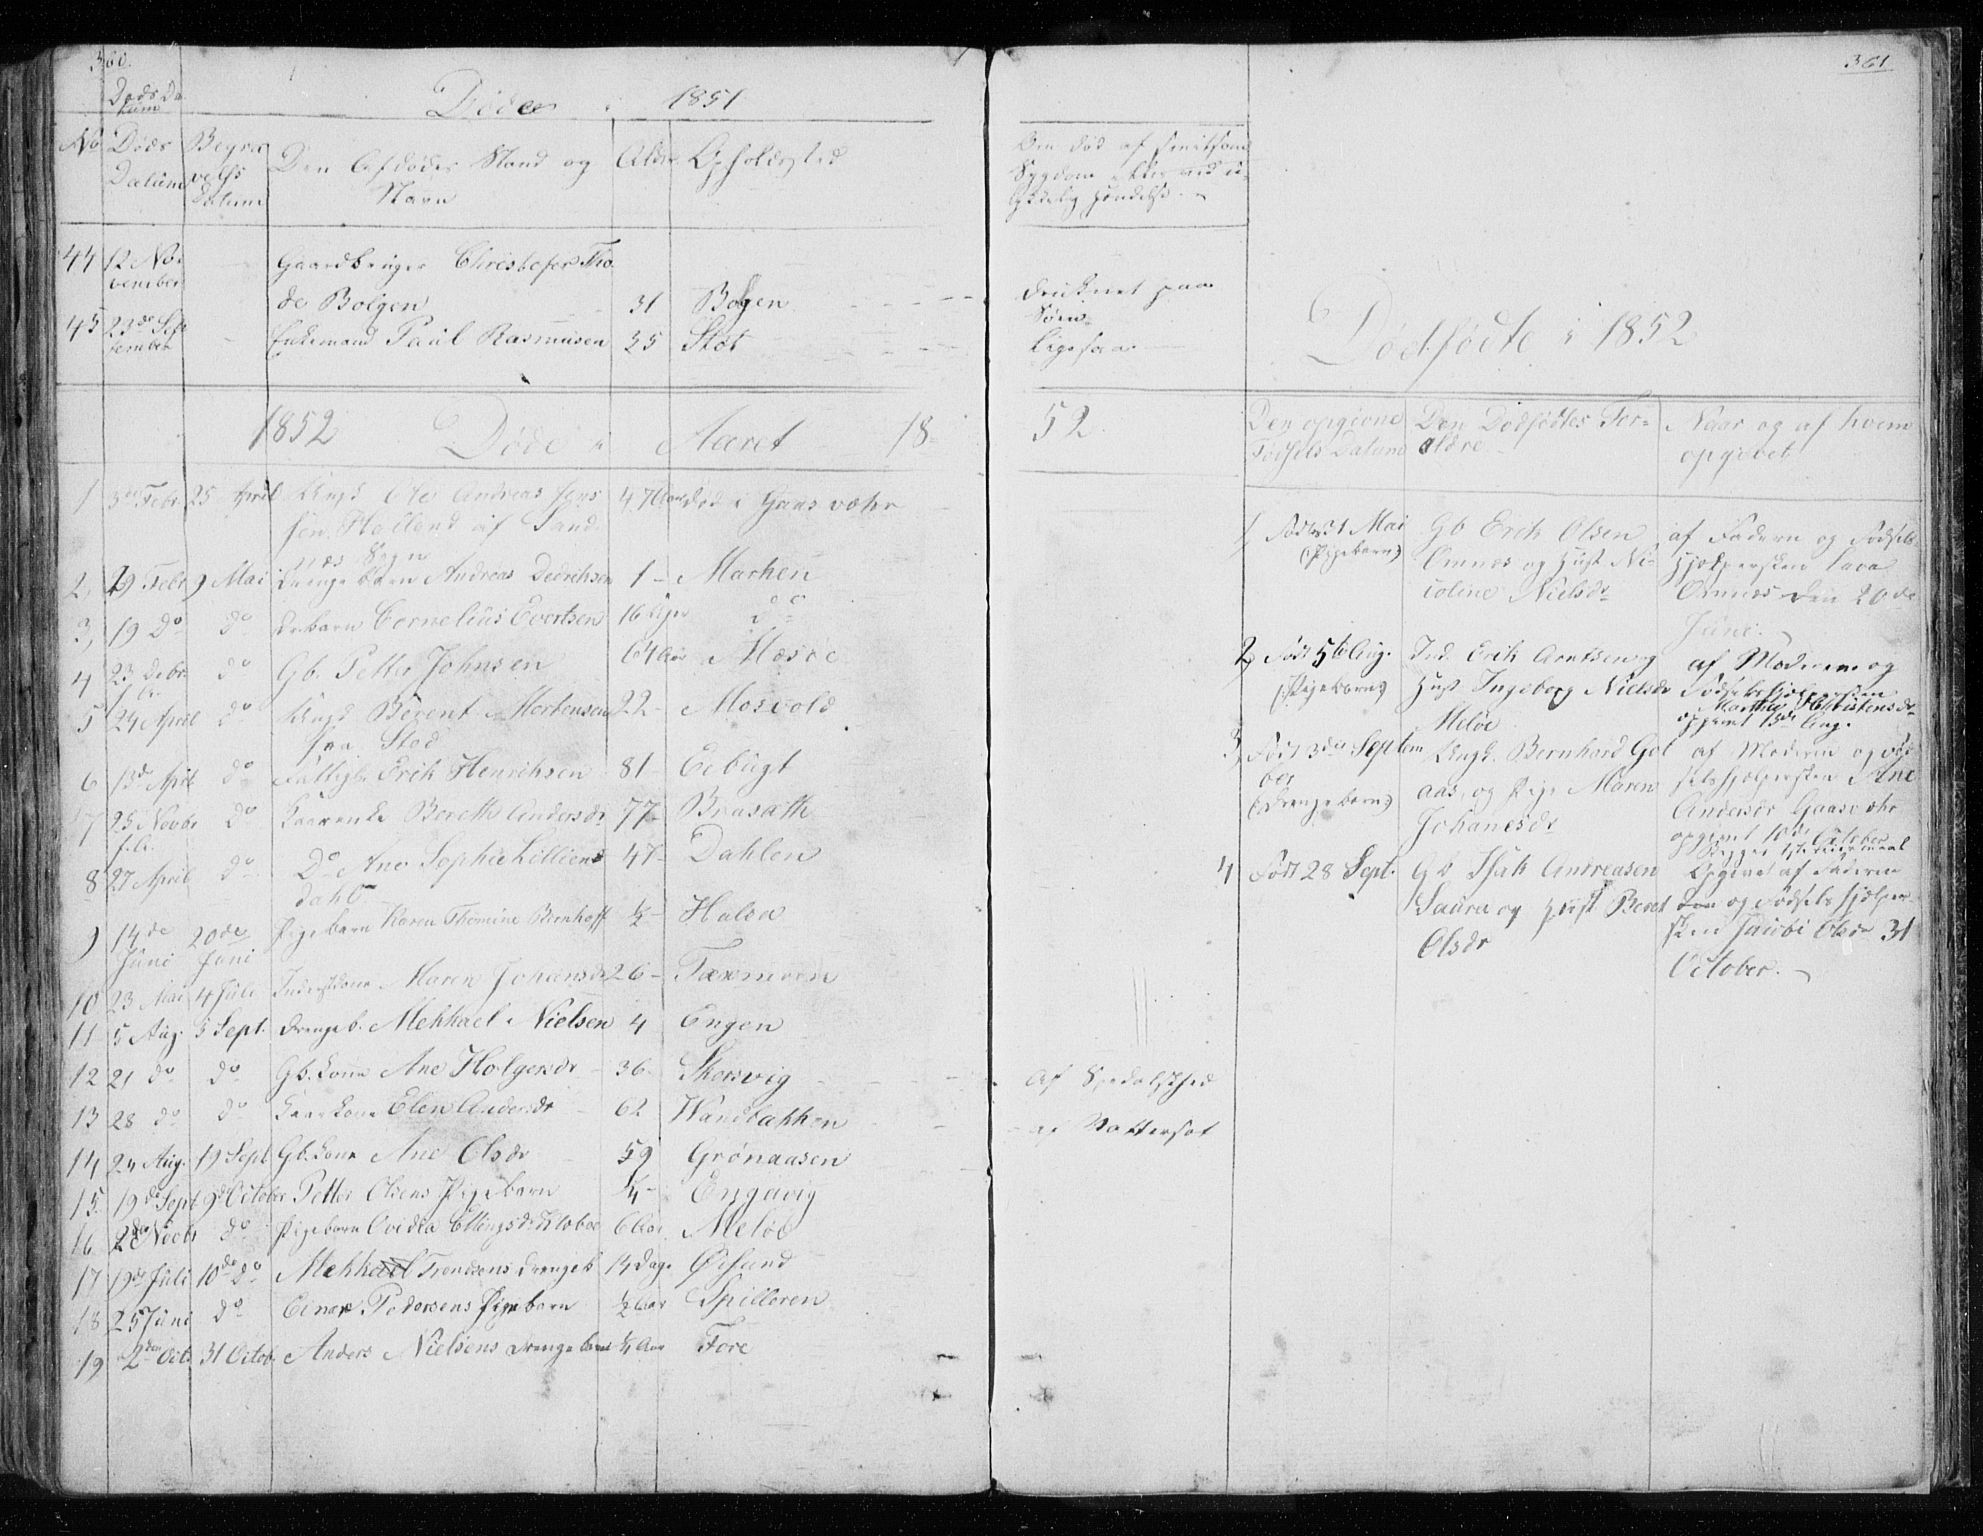 360.
Døde i 1851
No Døds Datum Begravelses Datum Den Afdødes Stand og Navn Alder Opholdssted
44 12 November Gaardbruger Christofer Tho
de Bolgen 31 Bolgen
45 23de September Enkemand Paul Rasmusen 35 Støt
1852 Døde i Aaret 18
1 3die Febr 25 April Ungk Ole Andreas Jens
sen Helland af Sand
næs Sogn 47 Aar død i Gaasvæhr
2, 29 Febr 9 Mai Drengebarn Andreas Dedrichsen 1 - Marken
3, 19 Do do Drbarn Cornelius Evertsen 16 Uger do
4 23 Debr f. A. do Gb. Petter Johnsen 64 Aar Mesøe
5 24 April do Ungk Berent Mortensen 22 - Mosvold
fra Stod
6 13de April do Fattigl. Erik Henrichsen 81 - Eebugt
7 25 Novbr f. A. do Kaarenke Bereth Andersdr 77 - Brasath
8 27 April do Do Ane Sophie Lillien
dahl 47 - Dahlen
9 14de Juni 20de Juni Pigebarn Karen Thomine Bernhoff ½ - Halsa
10 23 Mai 4 Juli Inderstkone Maren Johansdr 26 - Tæxmoen
11 5 Aug. 5 Sept. Drengeb. Mekkael Nielsen 4 Engen
12 21 do do Gb. Kone Ane Holgersdr 36 - Skorsvig
13 28 do do Kaarkone Elen Andersdr 62 Vandbakken
14 24 Aug. 19 Sept Gb. Kone Ane Olsdr 59 Grønaasen
15. 19de Sept 9de October Petter Olsens Pigebarn ¼ - Engavig
16 2de Novbr do Pigebarn Ovedia Ellingsdr Kloboe 6 Aar Meløe
17 19de Juli 10de do Mekkael Trondsens Drengeb 14 Dage Øesund
18 25 Juni do Einar Pedersens Pigebarn ½ Aar Spilderen
19 2den Octb 31 Octob. Anders Nielsens Drengebarn ¼ Aar Fore
361
Om død af smitsom
Sygdom eller ved u-
lykkelig Hændelse. -
druknet paa
Søen.
Ligesaa
52.
Af Spedalskhed
af Vattersot
Dødfødte i 1852
Den opgivne
Fødsels Datum
Den Dødfødtes For-
ældre
Naar og af hvem
opgivet
1 Født 31 Mai
(Pigebarn)
Gb Erik Olsen
Ornæs og Hust. Ni-
coline Nielsdr
af Faderen og Fødsels-
hjælpersken Lava
Ornæs den 20de
Juni.
2, Født 5te Aug.
(Pigebarn)
Ind. Erik Arntsen og
Hust Ingeborg Nielsdr
Meløe
af Moderen og
Fødselshjælpersken
Marthe Christensdr
opgivet 13de Aug.
3, Født 3die Septem
ber
(Drengebarn)
Ungk. Bernhard Gol
aas, og Pige Maren
Johanesdr
af Moderen og Fød
selshjælpersken Ane
Andersdr Gaasvæhr
opgivet 10de October
4 Født 28 Sept.
Gb Isak Andreasen
Saura og Hust Beret
Olsdr
Opgivet af Faderen
og Fødselshjælper
sken Jacobi Olsdr 31
October. -